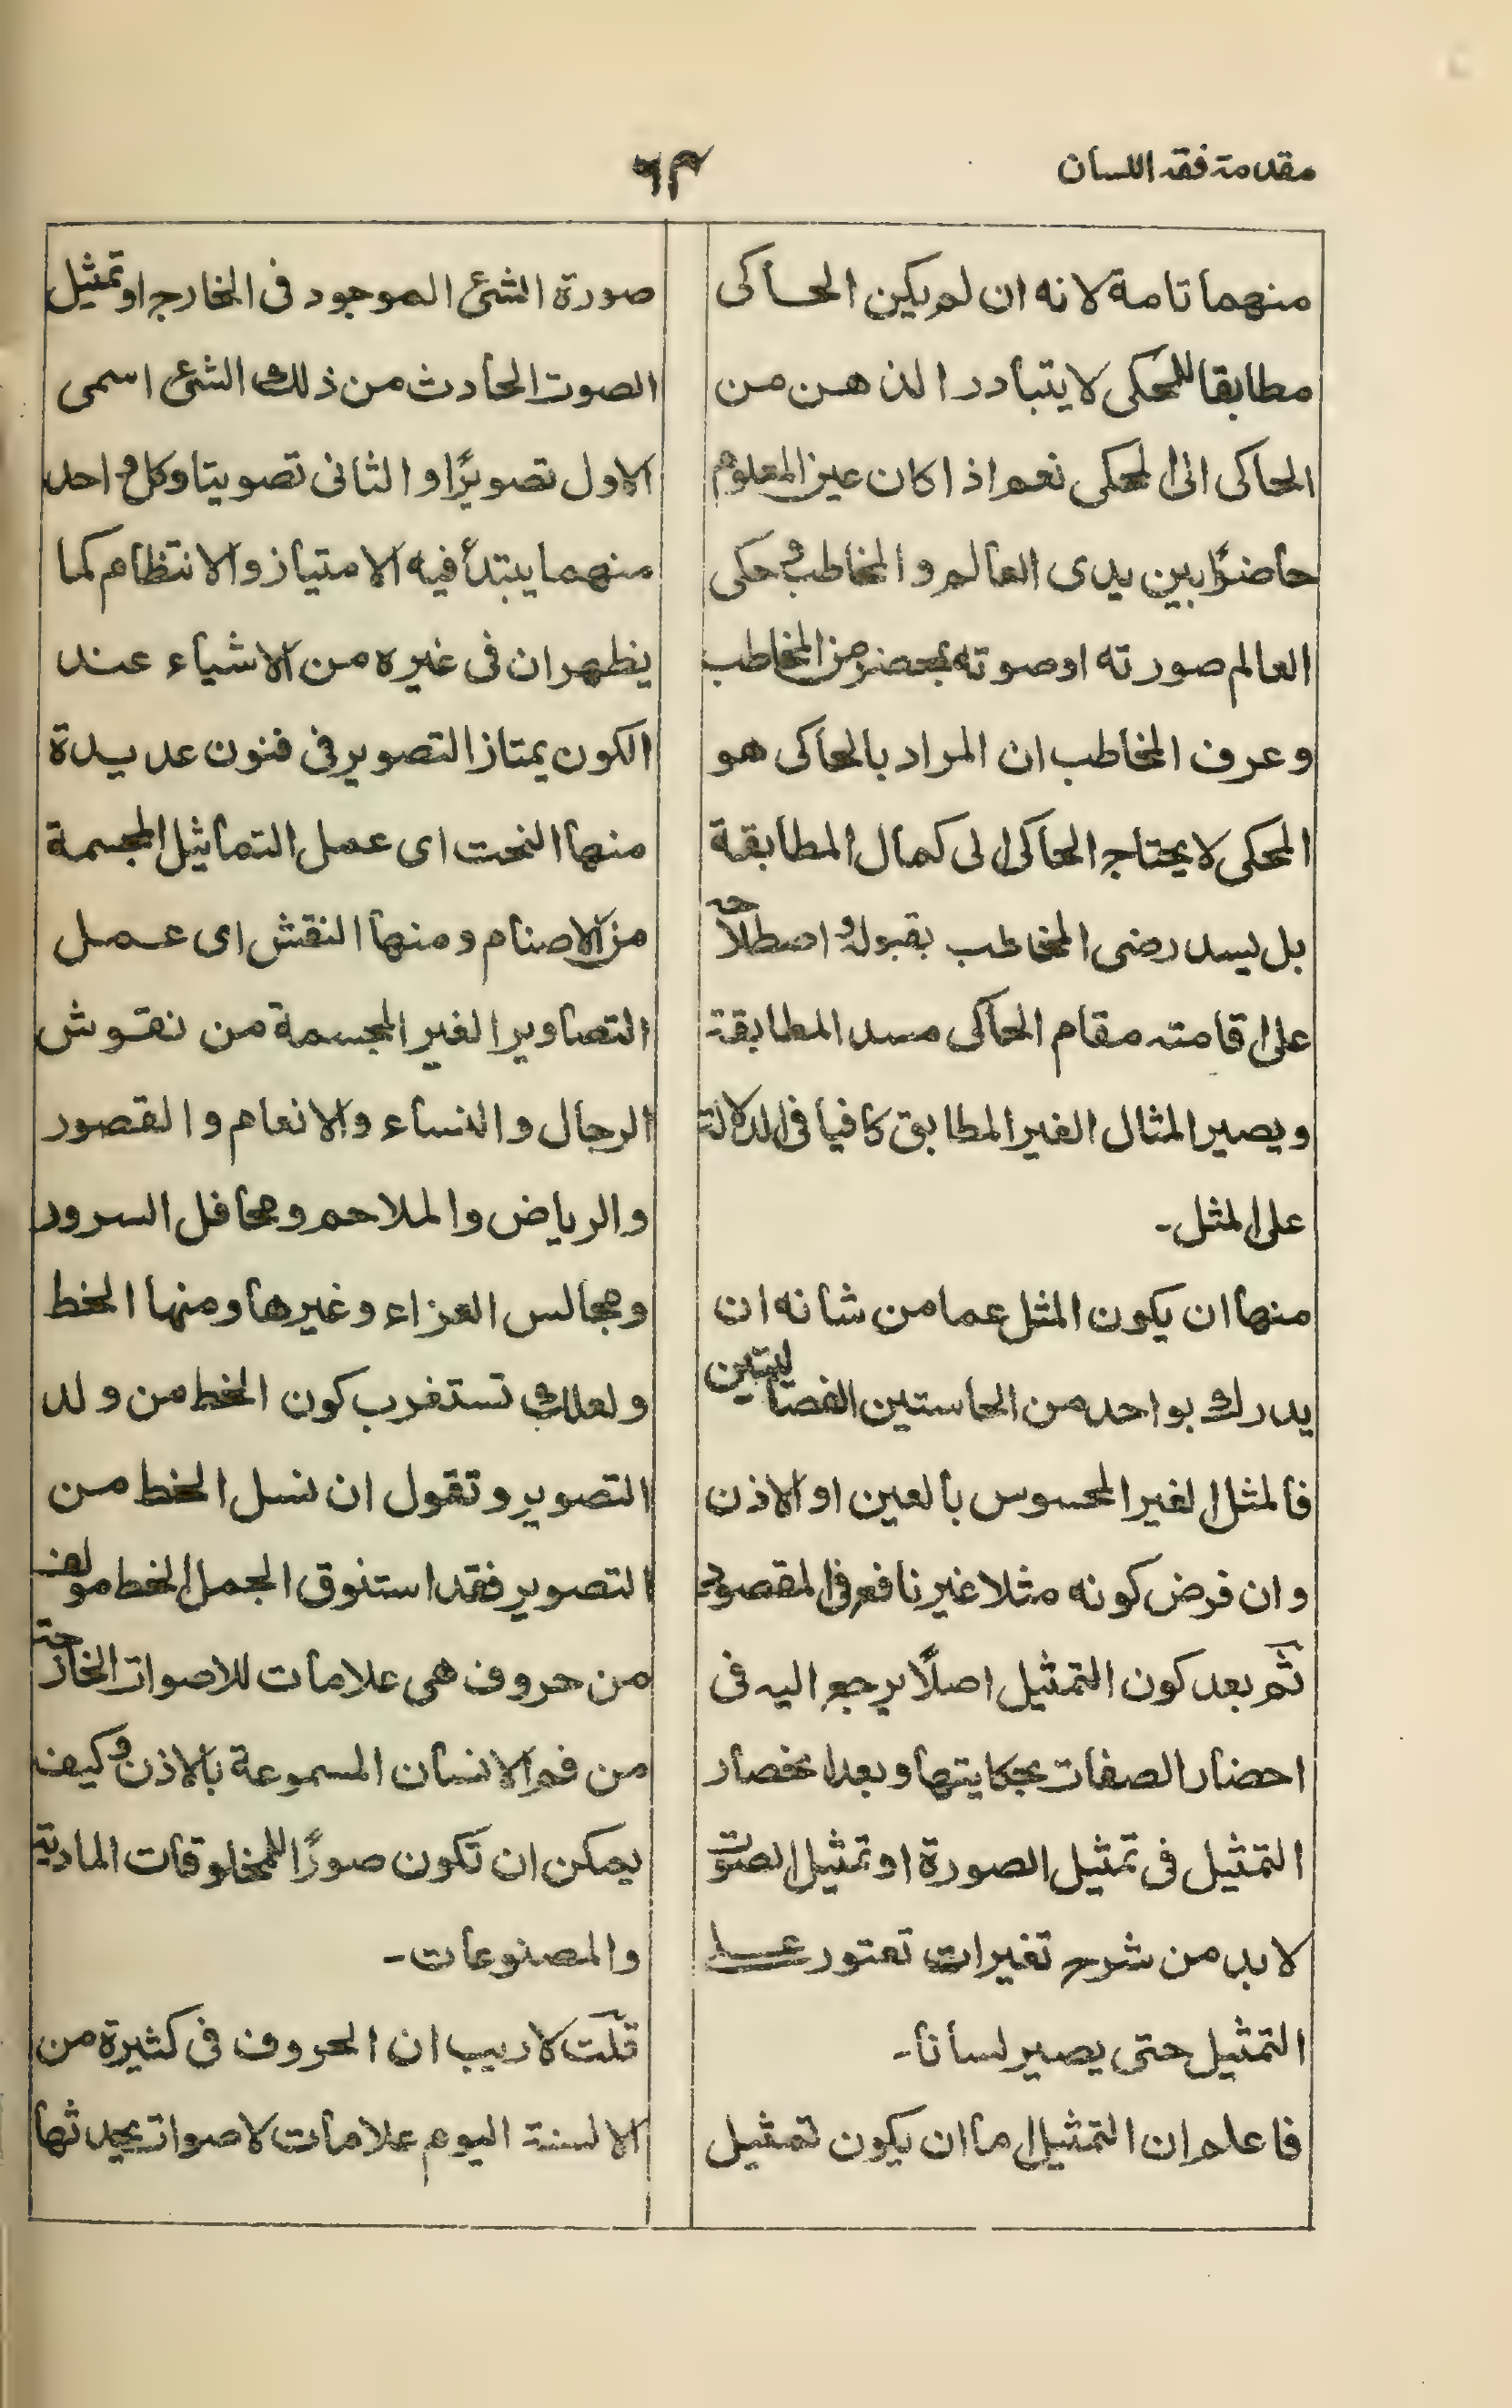 مقدمة فقه اللسان
٦٣
منهما تامة لانه ان لم يكن الحاكى
مطابقا للمحكى لا يتبادر الذهن من
الحاكى الى المحكى نعم اذا كان عين المعلوم
حاضرًا بين يدى العالم و المخاطب و حكى
العالم صورته او صوته بمحضر من المخاطب
و عرف المخاطب ان المراد بالحاكى هو
المحكى لا يحتاج الحاكى الى كمال المطابقة
بل يسد رضى المخاطب بقبوله و اصطلاحه
على اقامته مقام الحاكى مسد المطابقة
و يصير المثال الغير المطابق كافيا فى الدلالة
على المثل۔
منها ان يكون المثل عما من شانه ان
يدرك بواحد من الحاستين الفضاليتين
فالمثل الغير المحسوس بالعين او الاذن
و ان فرض كونه مثلا غير نافع فى المقصود
ثم بعد كون التمثيل اصلًا يرجع اليه فى
احضار الصفات بحكايتها و بعد انحصار
التمثيل فى تمثيل الصورة او تمثيل الصوت
لابد من شرح تغيرات تعتور على
التمثيل حتى يصير لسانا۔
فاعلم ان التمثيل اما ان يكون تمثيل
صورة الشئ الموجود فى الخارج او تمثيل
الصوت الحادث من ذلك الشئ اسمى
الاول تصويرًا و الثانى تصويتا و كل واحد
منهما يبتدأ فيه الامتياز و الانتظام كما
يظهران فى غيره من الاشياء عند
الكون يمتاز التصوير فى فنون عديدة
منها النحت اى عمل التماثيل المجسمة
من الاصنام و منها النقش اى عمل
التصاوير الغير المجسمة من نقوش
الرجال و النساء و الانعام و القصور
و الرياض و الملاحم و محافل السرور
و مجالس العزاء و غيرها و منها الخط
و لعلك تستغرب كون الخط من ولد
التصوير و تقول ان نسل الخط من
التصوير فقد استنوق الجمل الخط مولف
من حروف هى علامات للاصوات الخارجة
من فم الانسان المسموعة بالاذن و كيف
يمكن ان تكون صورًا للمخلوقات المادية
و المصنوعات۔
قلت لاريب ان الحروف فى كثيرة من
الالسنة اليوم علامات لاصوات يحدثها